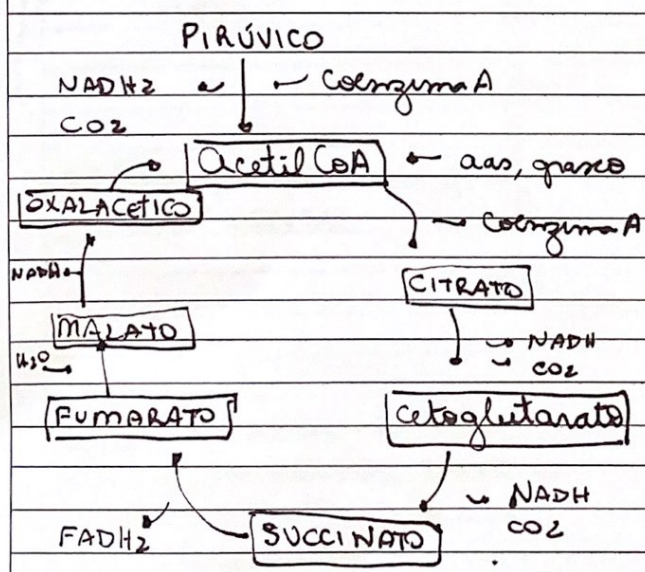 PIRÚVICO
NADH2 Coenzima A
CO2
Acetil CoA aas, graxo
OXALACETICO
Coenzima A
NADH
CITRATO
MALATO
NADH
CO2
H2O
FUMARATO
Cetoglutarato
NADH
CO2
FADH2
SUCCINATO